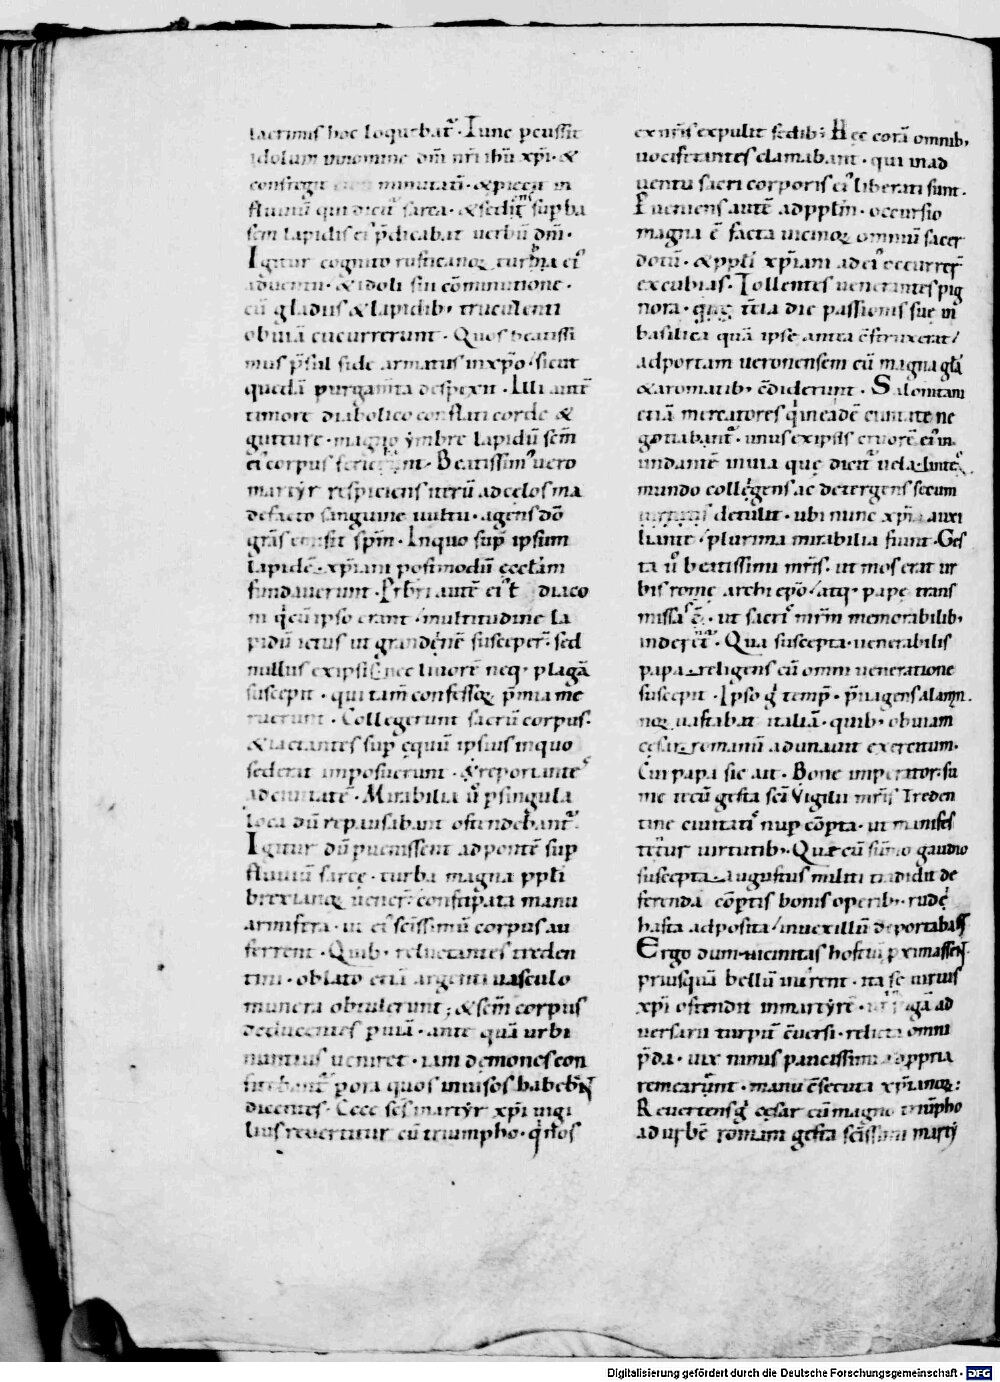 lacrimis hoc loquebat᷑. Tunc ꝑcussit
idolum in nomine dn̄i nr̄i ihū xp̄i. &
confregit minutati. & ꝓiecit in
fluuiū qui dicit᷑ sarca. & sedit sup ba
sem lapidis ei p̄dicabat uerbū dn̄i.
Igitur cognito rusticanoꝝ turba eiꝰ
aduentu. & idoli sui cōminutione.
cū gladiis & lapidibꝫ truculenti
obuiā cucurrerunt. Quos beatissi
mus p̄sul fide armatus in xp̄o sicut
quedā purgam̄ta despexit. Illi autē
timore diabolico conflati corde &
gutture. magno ymbre lapidū sc̄m
eiꝰ corpus ferierunt. Beatissimꝰ uero
martyr respiciens iterū ad celos ma
defacto sanguine uultu. agens dō
grās emisit sp̄m. In quo sup ipsum
lapidē xp̄iani postmodū eccl̄am
fundauerunt. Prb̄ri autē eiꝰ & diaco
ni qͥ cū ipso erant multitudine la
pidū ictus ut grandenē susceper̄. sed
nullus ex ipsis nec liuorē neqꝫ plagā
suscepit. qui tam̄ confessoꝝ p̄mia me
ruerunt. Collegerunt sacrū corpus.
& iactantes sup equū ipsius in quo
sederat imposuerunt. & reportantes
ad ciuitatē. Mirabilia u͛ ꝑ singula
loca dū repausabant ostendebant᷑.
Igitur dū ꝑuenissent ad pontē sup
fluuiū sarce. turba magna pp̄li
brexianoꝝ uener̄ constipata manu
armifera. ut ei sc̄issimū corpus au
ferrent. Quibꝫ reluctantes treden
tini. oblato etiā argenti uasculo
munera obtulerunt; & sc̄m corpus
deducentes ꝑ uiā. ante quā urbi
nuntius ueniret. iam demones con
fitebant᷑ ꝑ ora quos inuisos habebN̄
dicentes. Ecce sc̄s martyr xp̄i uigi
lius reuertitur cū triumpho. qͥ nos
ex nr̄is expulit sedibꝫ Hec corā omnibꝫ
uociferantes clamabant. qui in ad
uentu sacri corporis eiꝰ liberati sunt.
Pueniens autē ad pp̄lm̄. occursio
magna ē facta uicinoꝝ omniū sacer
dotū. & pp̄li xp̄iani ad eiꝰ occurrer̄
excubias. Tollentes uenerantes pig
nora. quę t̄tia die passionis sue in
basilica quā ipse antea cōstruxerat
ad portam ueronensem cū magna glā
& aromatibꝫ cōdiderunt. Salonitani
etiā mercatores qͥ in eadē ciuitate ne
gotiabant᷑. unus ex ipsis cruorē eiꝰ in
undantē in uia que dicit᷑ uela. linteo
mundo collegens ac detergens secum
detulit. ubi nunc xp̄i auxi
liante plurima mirabilia fiunt. Ges
ta u͛ beatissimi mr̄is. ut mos erat ur
bis rome archi ep̄o atqꝫ pape trans
missa sē. ut sacri mr̄m memorabilibꝫ
inderet᷑. Qua suscepta uenerabilis
papa religens cū omni ueneratione
suscepit. Ipso g͛ temp̄. p̄uagens alamn̄
noꝝ uastabat italiā. quibꝫ obuiam
cesar romanū adunauit exercitum.
Cui papa sic ait. Bone imperator. su
me tecū gesta sc̄i Vigilii mr̄is Triden
tine ciuitatis nup cōpta. ut manifes
tet᷑ur uirtutibꝫ. Quæ cū sūmo gaudio
suscepta augustus militi tradidit de
ferenda cōptis bonis operibꝫ. rude
hasta adposita in uexillū deportabas.
Ergo dum uicinitas hostiū ꝓximassēt.
priusquā bellū inirent. ita se uirtus
xp̄i ostendit in martyrē fugā ad
uersarii turpiū euersi. relicta omni
p̄da. uix nimis paucissimi ad ꝓpria
remearunt. manu cōsecuta xp̄ianoꝝ:
Reuertens g͛ cesar cū magno triūpho
ad urbē romam gesta sc̄issimi marty